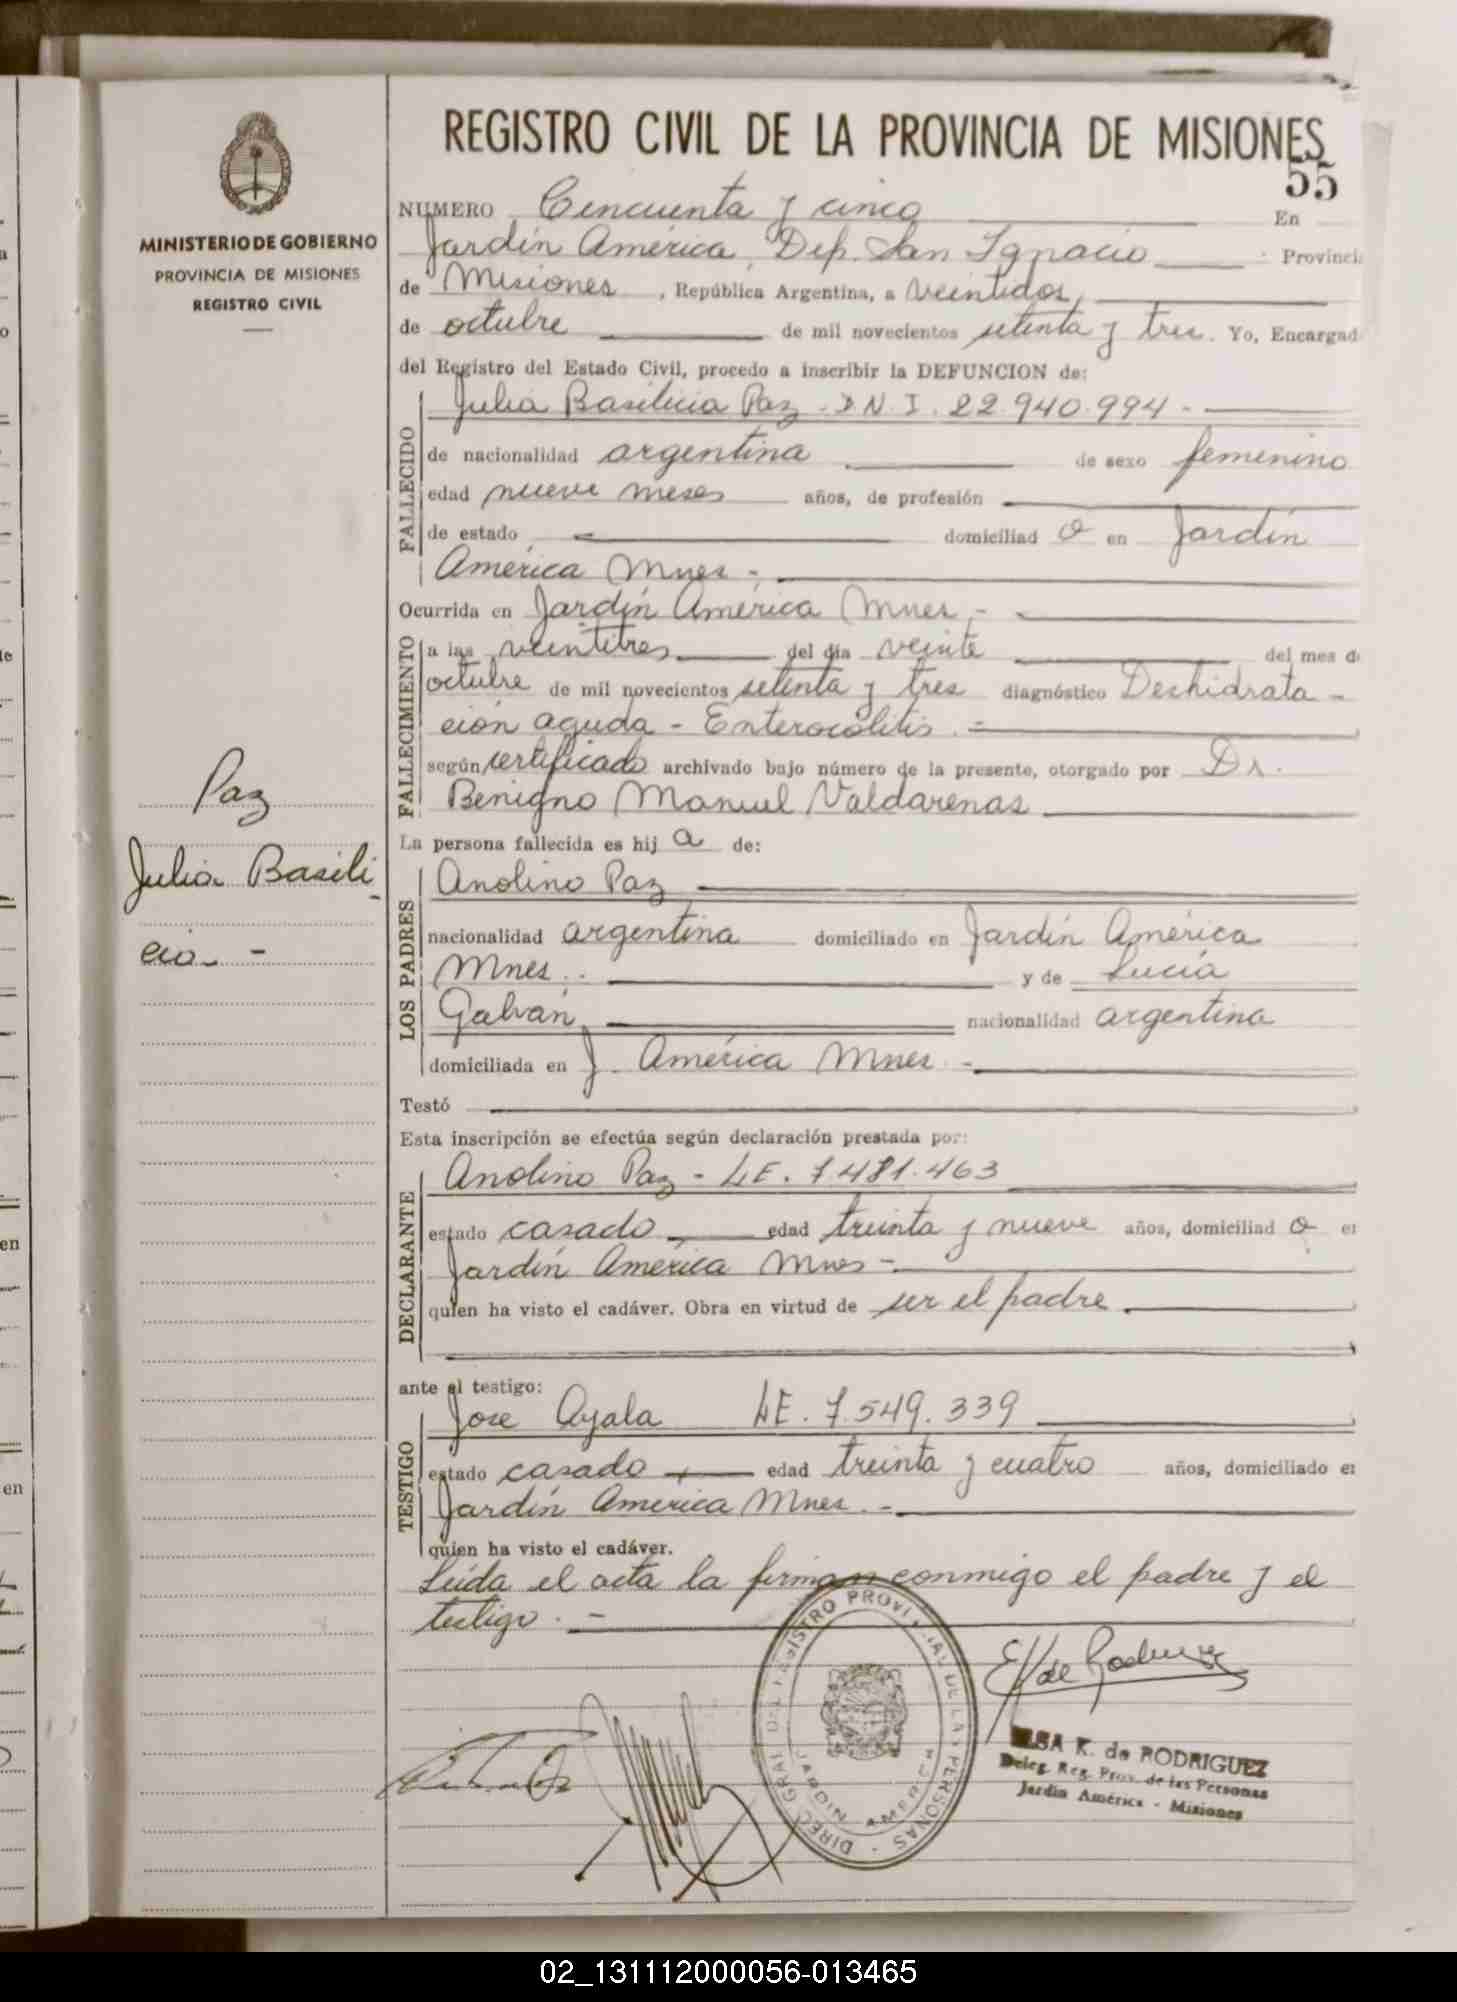 REGISTRO CIVIL DE LA PROVINCIA DE MISIONES
55
MINISTERIO DE GOBIERNO
PROVINCIA DE MISIONES
REGISTRO CIVIL
NUMERO Cincuenta y cinco En
Jardín América, Dep. San Ignacio Provinci
de Misiones, República Argentina, a veintidos,
de octubre de mil novecientos setenta y tres. Yo, Encargad
del Registro del Estado Civil, procedo a inscribir la DEFUNCION de:
FALLECIDO
Julia Basilicia Paz - D.N.I. 22.940.994 -
de nacionalidad argentina de sexo femenino
edad nueve meses años, de profesión
de estado domiciliad o en Jardín
América Mnes -
Ocurrida en Jardín América Mnes -
FALLECIMIENTO
a las veintitres del día veinte del mes d
octubre de mil novecientos setenta y tres diagnóstico Deshidrata -
ción aguda - Enterocolitis.
según certificado archivado bajo número de la presente, otorgado por Dr.
Benigno Manuel Valdarenas
Paz
Julia Basili -
cia -
La persona fallecida es hij a de:
LOS PADRES
Anolino Paz
nacionalidad argentina domiciliado en Jardín América
Mnes. y de Lucía
Galván nacionalidad argentina
domiciliada en J. América Mnes -
Testó
Esta inscripción se efectúa según declaración prestada por:
DECLARANTE
Anolino Paz - L.E. 7.481.463
estado casado edad treinta y nueve años, domiciliad o e
Jardín América Mnes -
quien ha visto el cadáver. Obra en virtud de ser el padre.
ante el testigo:
TESTIGO
Jose Ayala L.E. 7.549.339
estado casado edad treinta y cuatro años, domiciliado e
Jardín América Mnes. -
quien ha visto el cadáver.
Leída el acta la firman conmigo el padre y el
testigo. -
DIREC. GRAL. DEL REGISTRO PROVINCIAL DE LAS PERSONAS
JARDIN AMERICA
E K de Rodriguez
ELSA K. de RODRIGUEZ
Deleg. Reg. Prov. de las Personas
Jardín América - Misiones
02_131112000056-013465